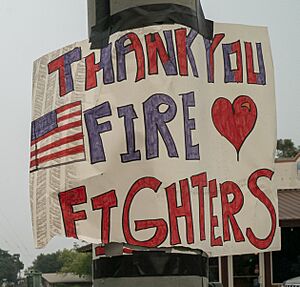 THANK YOU
FIRE
FIGHTERS